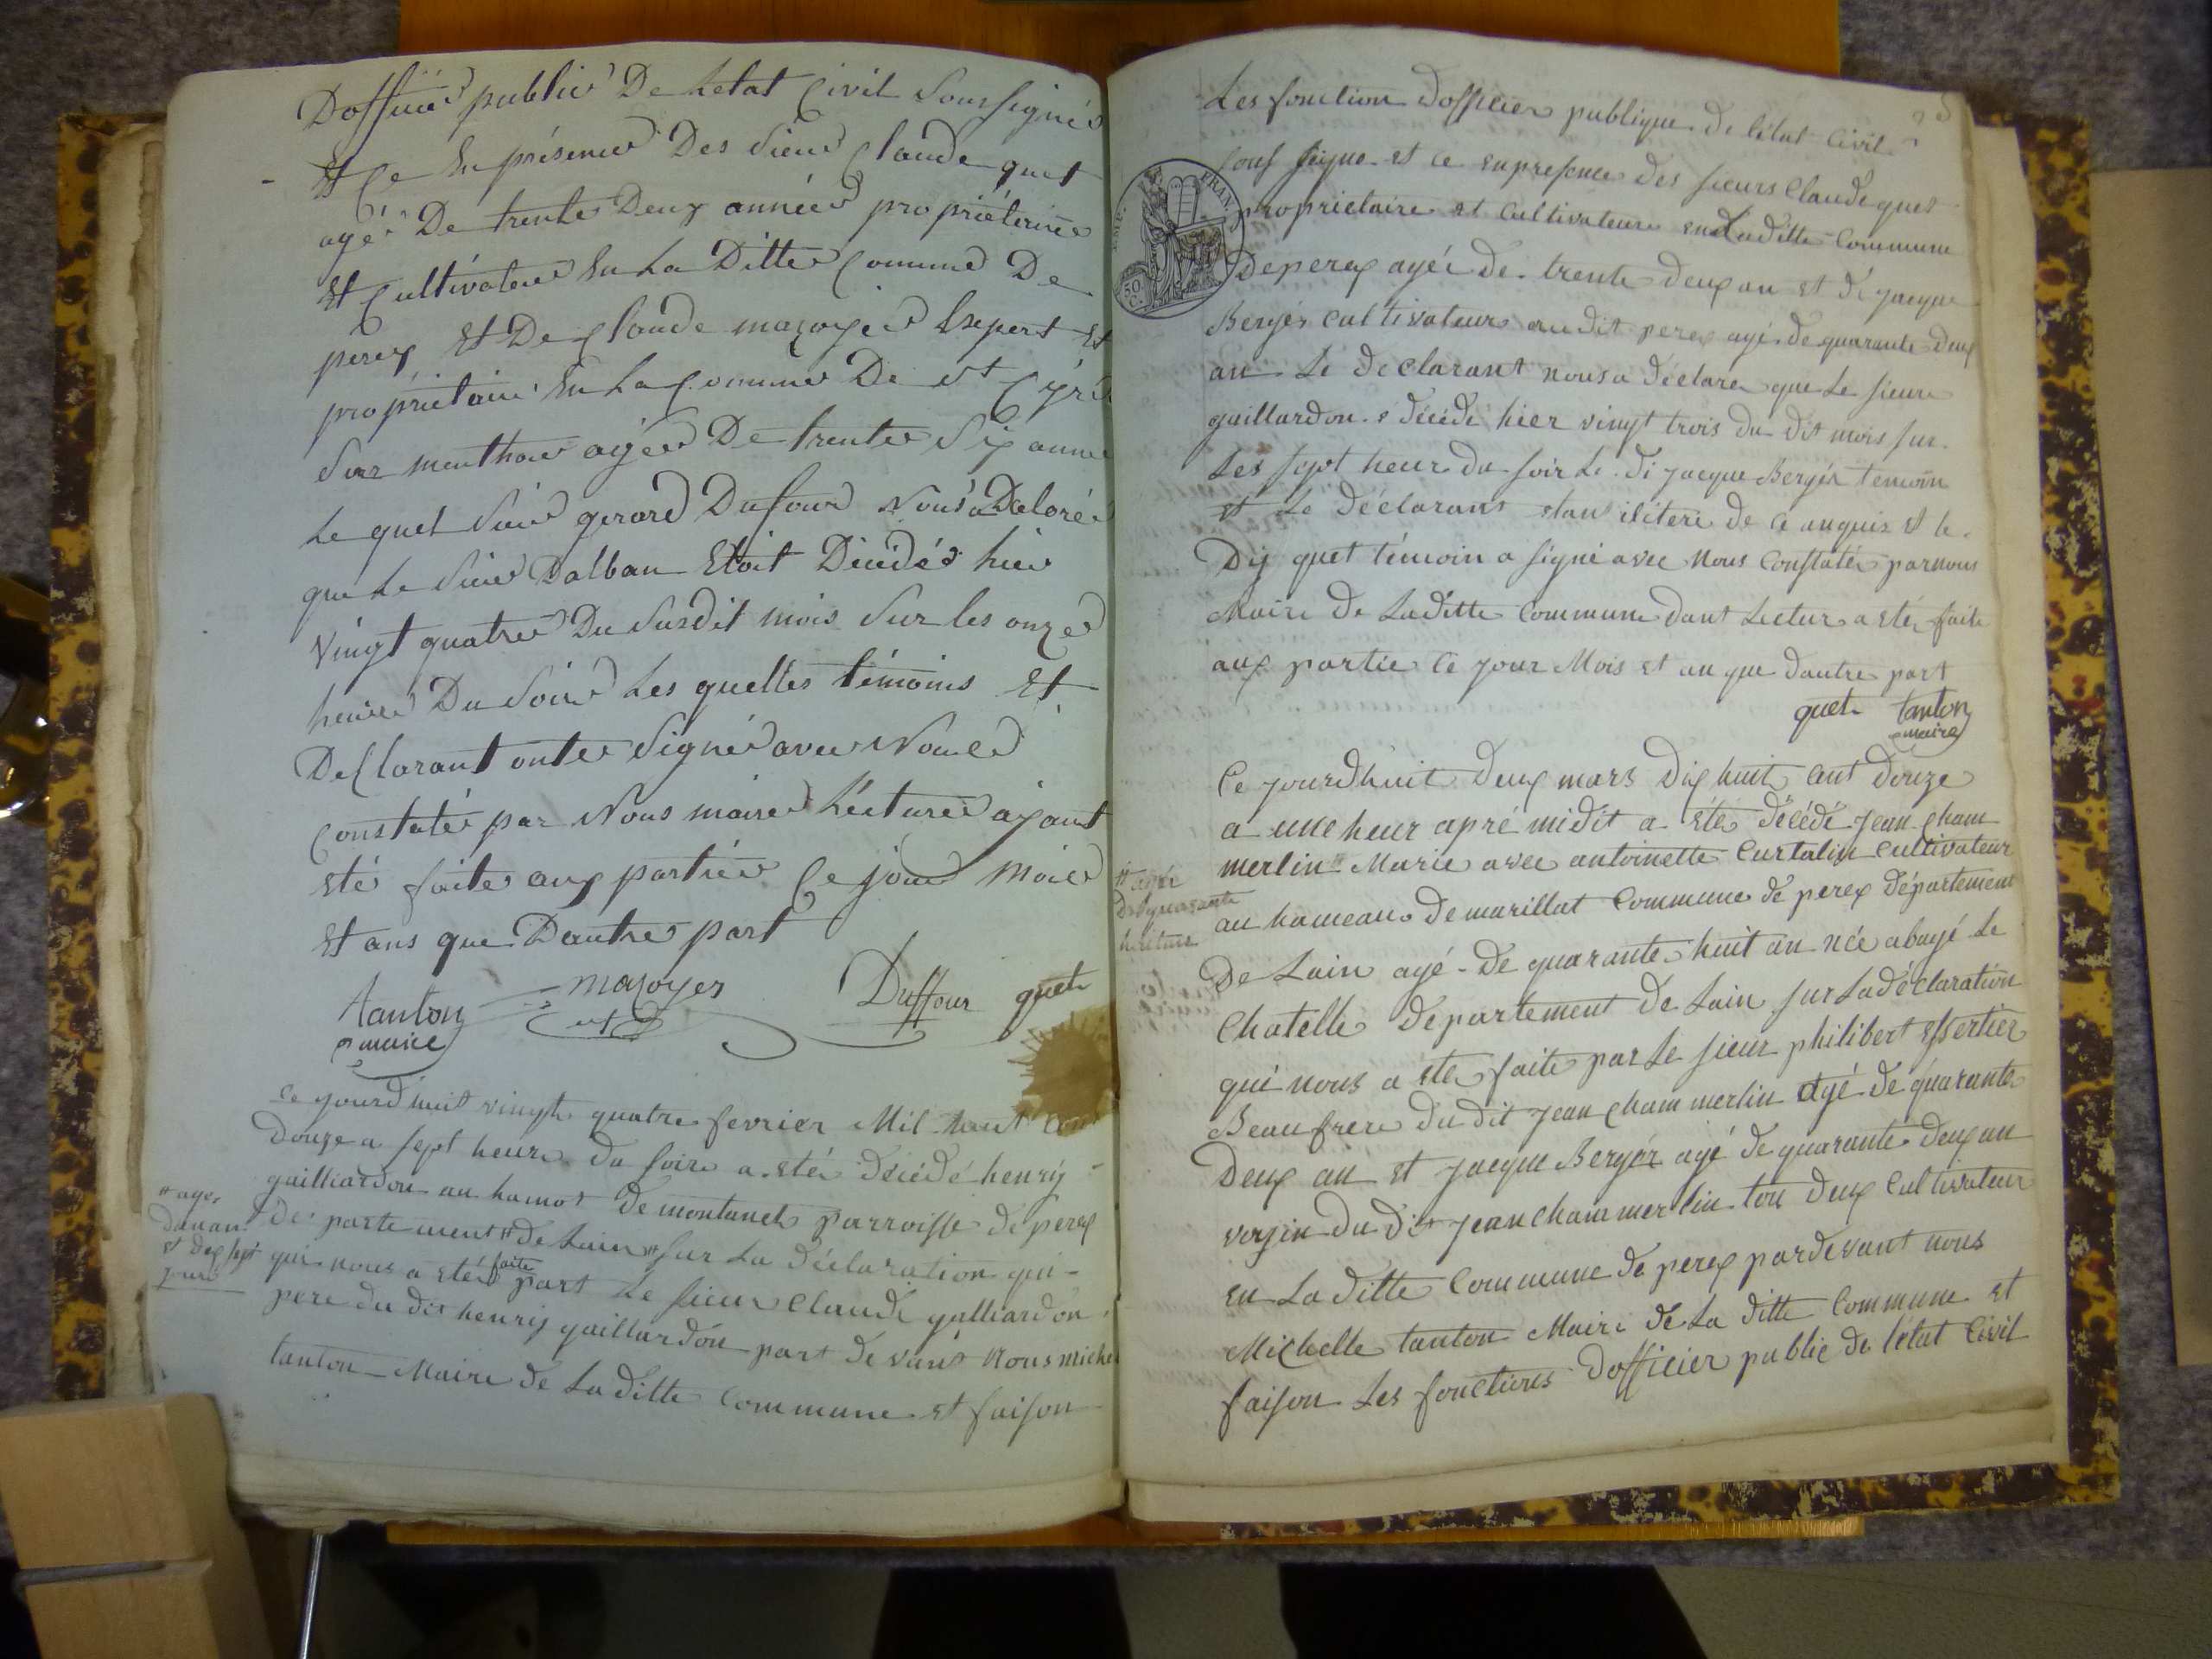 Dofficié public De Letat Civil Soussignés
Et Ce En présence Des Sieur Claude quet
agé De trente Deux année propriéterire
Et Cultivateur En La Ditte Comune De
perex Et De Claude mazoyer Expert Et
propriétaire En La Comune De St Cyre
Sur menthon agée De trente Six anne
Le quel Sieur gerard Dufour Nous a Delaré
que Le Sieur Dalban Etoit Décédé hier
vingt quatre Du Susdit mois Sur les onze
heure Du Soire Les quelles témoins Et
Desclarant onte Signé avec Nous
Constaté par Nous maire Lecture ayant
eté faite aux partié Ce jour Mois
Et ans que Dautre part
tanton maire
mazoyer
Duffour
quet
Ce jourdhuit vingt quatre fevrier Mil huit Cent
Douze a sept heure du soire a eté décédé henrÿ
gailliardon au hamot de montanet parroisse de perex
departement # de Lain # sur La déclaration qui
qui nous a eté faite part Le sieur Claude galliardon
pere du dit henrÿ gaillardon part devant Nous michel
tanton Maire de La ditte Commune et faison
# age
dun an
et dex sept
jours
Les fonction dofficier publique de létat Civil
sous signe et Ce en presence des sieurs Claude quet
propriétaire et Cultivateur en Laditte Commune
de perex agéé de trente deux an et de jacque
Bergér Cultivateur audit perex agé de quarante deux
an Le declarant nous a déclaré que Le sieur
gaillardon e décédé hier vingt trois du dit mois sur
Les sept heur du soir Le di jacque Bergér temoin
et Le déclarant etan iliteré de Ce anquis et le
Dis quet témoin a signé avec Nous Constaté par nous
Maire de Laditte Commune dant Lectur a eté faite
aux partie Ce jour Mois et an que dautre part
quet tanton
maire
Ce jourdhuit deux mars dix huit Cent douze
a une heur apré midit a eté décédé jean Cham
merlin # Marie avec antoinette Curtalin Cultivateur
au hameau de marillat Commune de perex département
De Lain agé de quarante huit an née a bagé Le
Chatelle département de Lain sur La déclaration
qui nous a eté faite par Le sieur philibert essertier
Beau frere du dit jean Cham merlin agé de quarante
Deux an et jacque Bergér agé de quarante deux an
voysin du dit jean Cham merlin tou deux Cultivateur
en La ditte Commune de perex pardevant nous
Michelle tanton Maire de La ditte Commune et
faison Les fonctions dofficier public de létat Civil
EMP.
FRAN.
50 C.